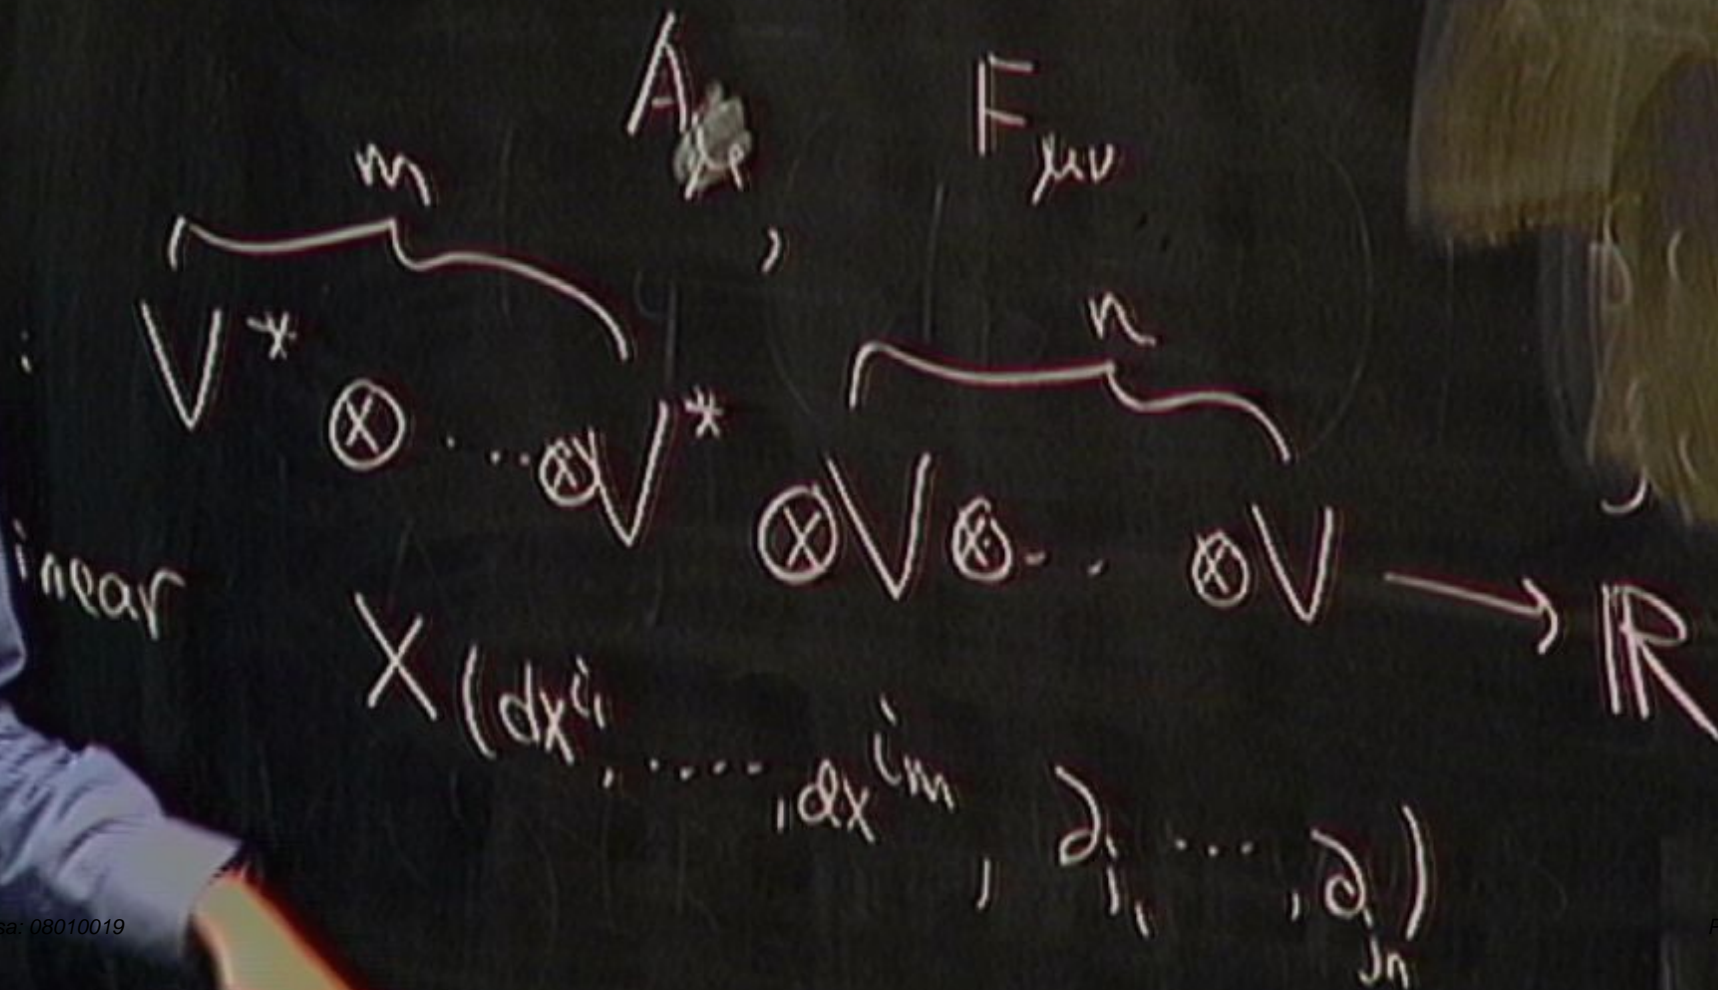 A_μ , F_{μν}
m
n
V* ⊗ ····⊗V* ⊗V⊗·· ⊗V → ℝ
inear
X(dx^{i_1}, ····, dx^{i_m}, ∂_{j_1} ···, ∂_{j_n})
sa: 08010019